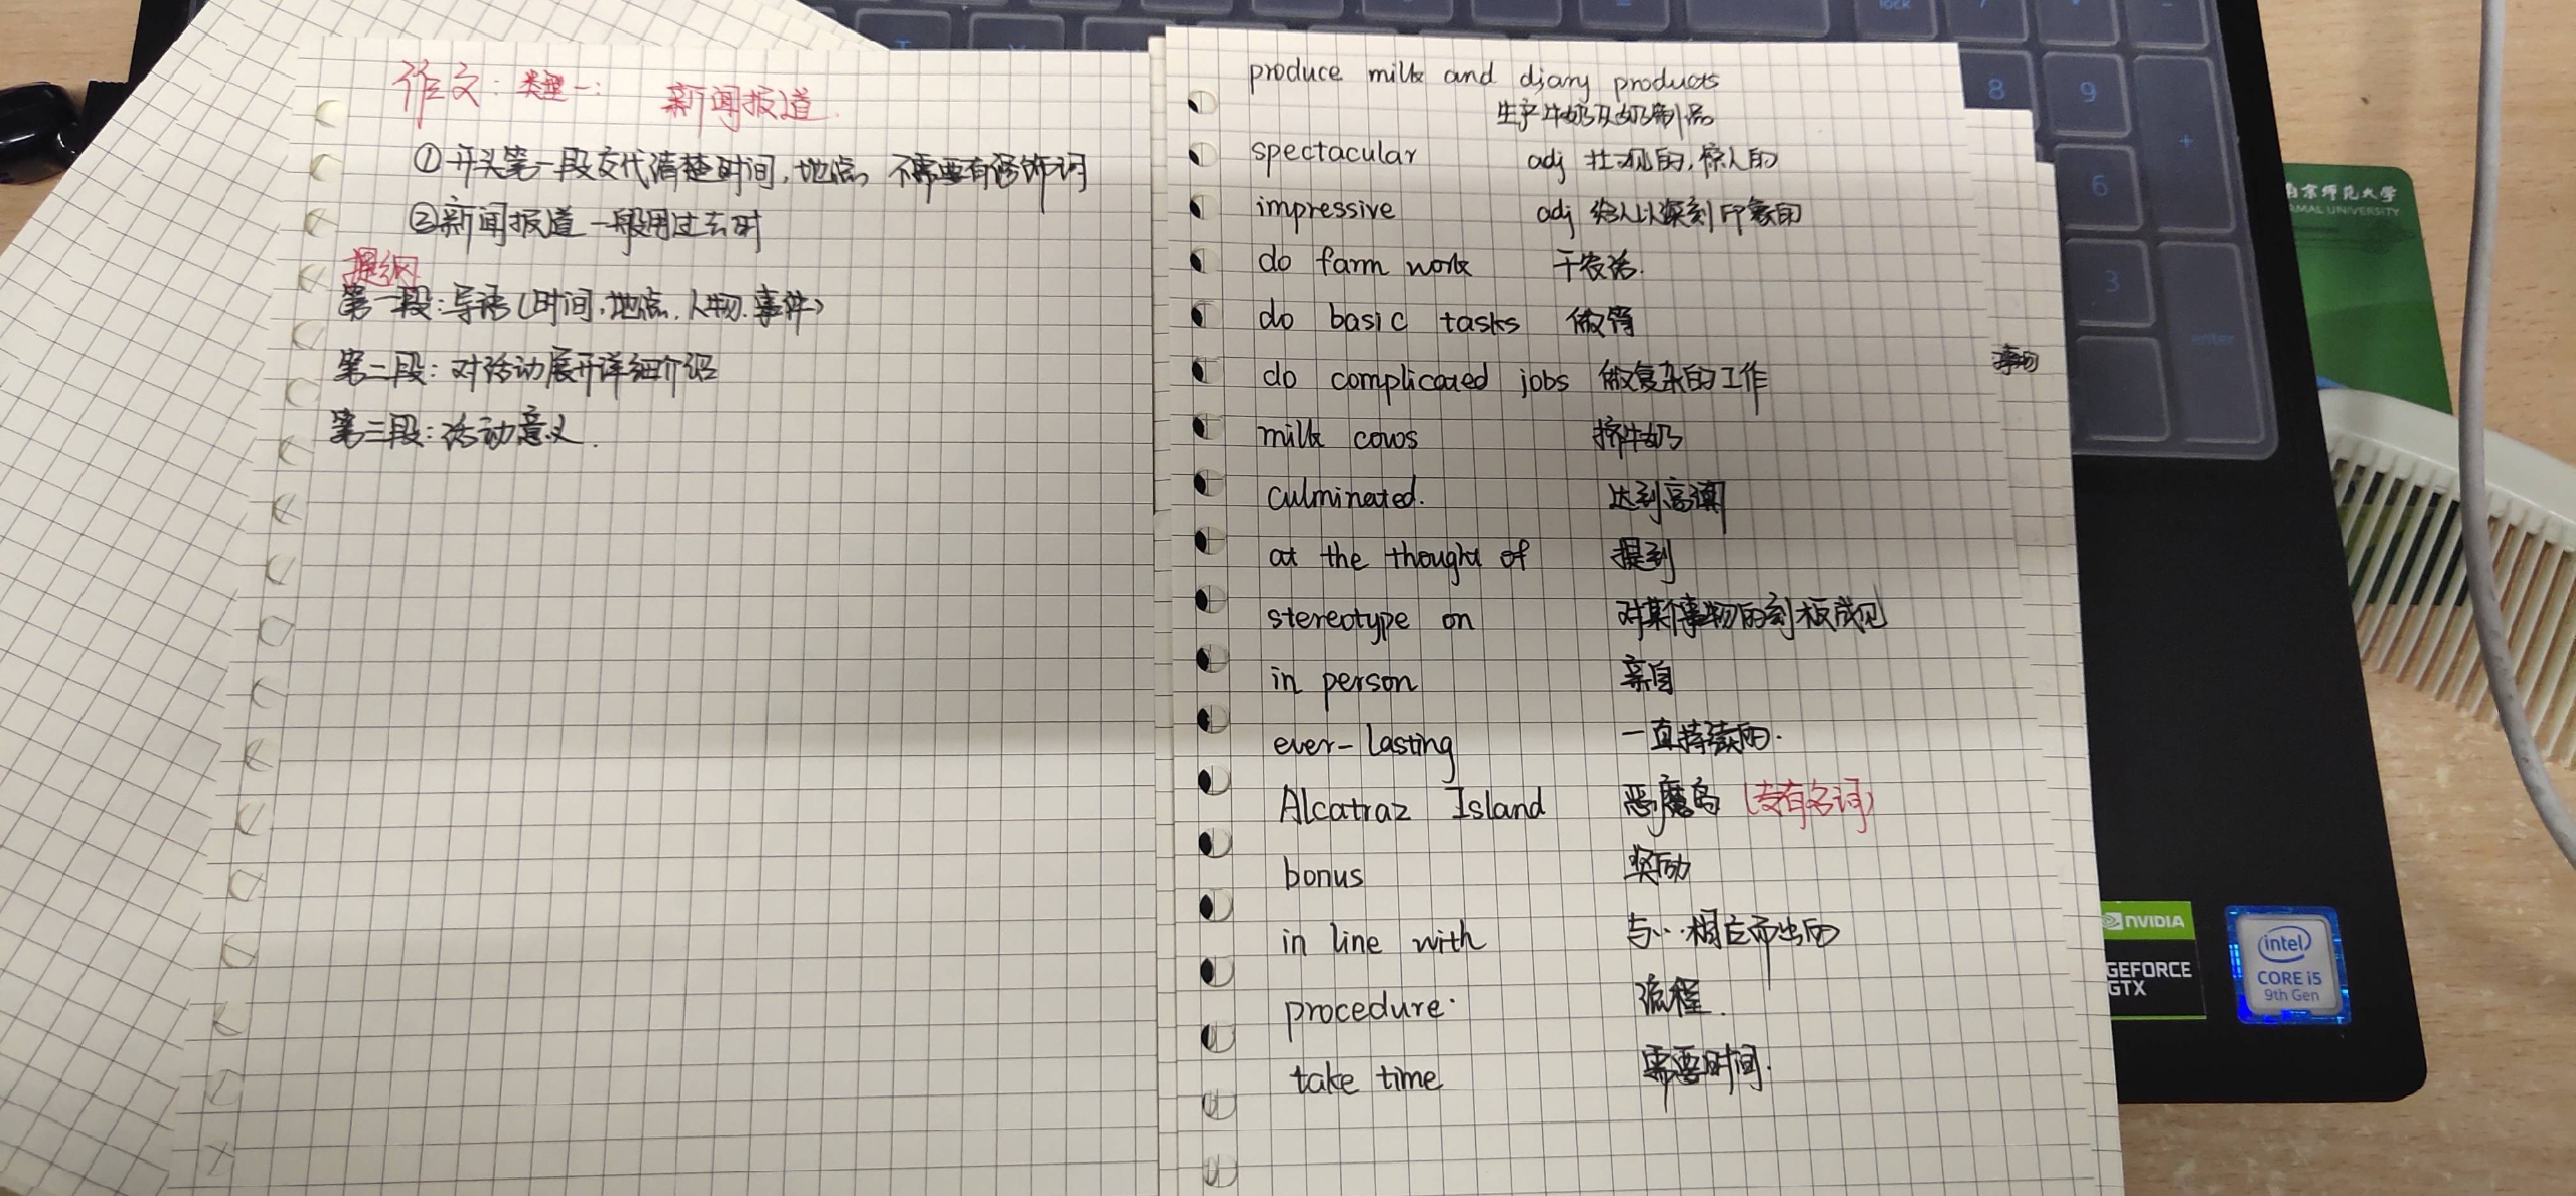 作文: 类型一: 新闻报道.
①开头第一段交代清楚时间,地点, 不需要有修饰词
②新闻报道 一般用过去时
提纲
第一段:导语(时间,地点,人物,事件)
第二段:对活动展开详细介绍
第三段:活动意义.
produce milk and diary products
生产牛奶及奶制品
spectacular adj 壮观的,惊人的
impressive adj 给人以深刻印象的
do farm work 干农活.
do basic tasks 做简
do complicated jobs 做复杂的工作
milk cows 挤牛奶
culminated. 达到高潮
at the thought of 提到
stereotype on 对某事物的刻板成见
in person 亲自
ever-lasting 一直持续的.
Alcatraz Island 恶魔岛 (专有名词)
bonus 奖励
in line with 与…相应而出的
procedure. 流程.
take time 需要时间.
南京师范大学
RMAL UNIVERSITY
lock
8
9
+
6
3
enter
NVIDIA
GEFORCE
GTX
intel
CORE i5
9th Gen